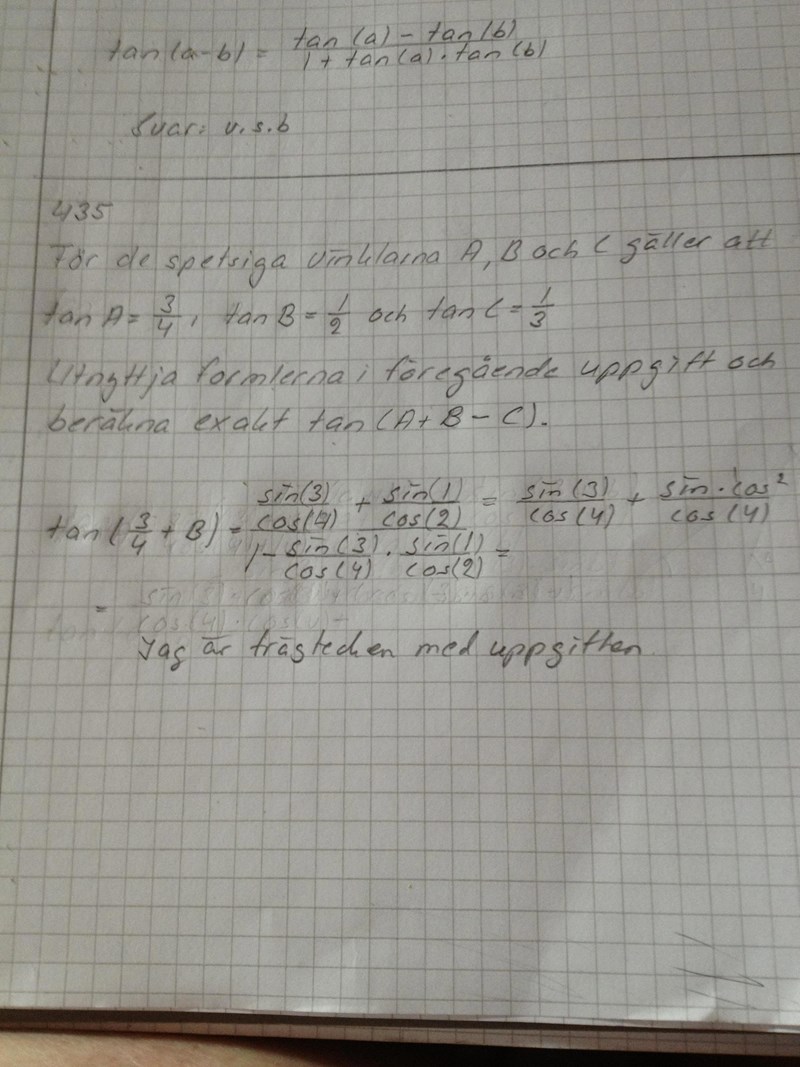 tan(a-b) = tan(a) - tan(b) / 1 + tan(a) · tan(b)
Svar: v.s.b
435
För de spetsiga vinklarna A, B och C gäller att
tan A = 3/4, tan B = 1/2 och tan C = 1/3
Utnyttja formlerna i föregående uppgift och
beräkna exakt tan(A+B-C).
sin(3)/cos(4) + sin(1)/cos(2) = sin(3)/cos(4) + sin·cos²/cos(4)
tan(3/4 + B) =
1 - sin(3)/cos(4) · sin(1)/cos(2) =
=
Jag är frågtecken med uppgiften